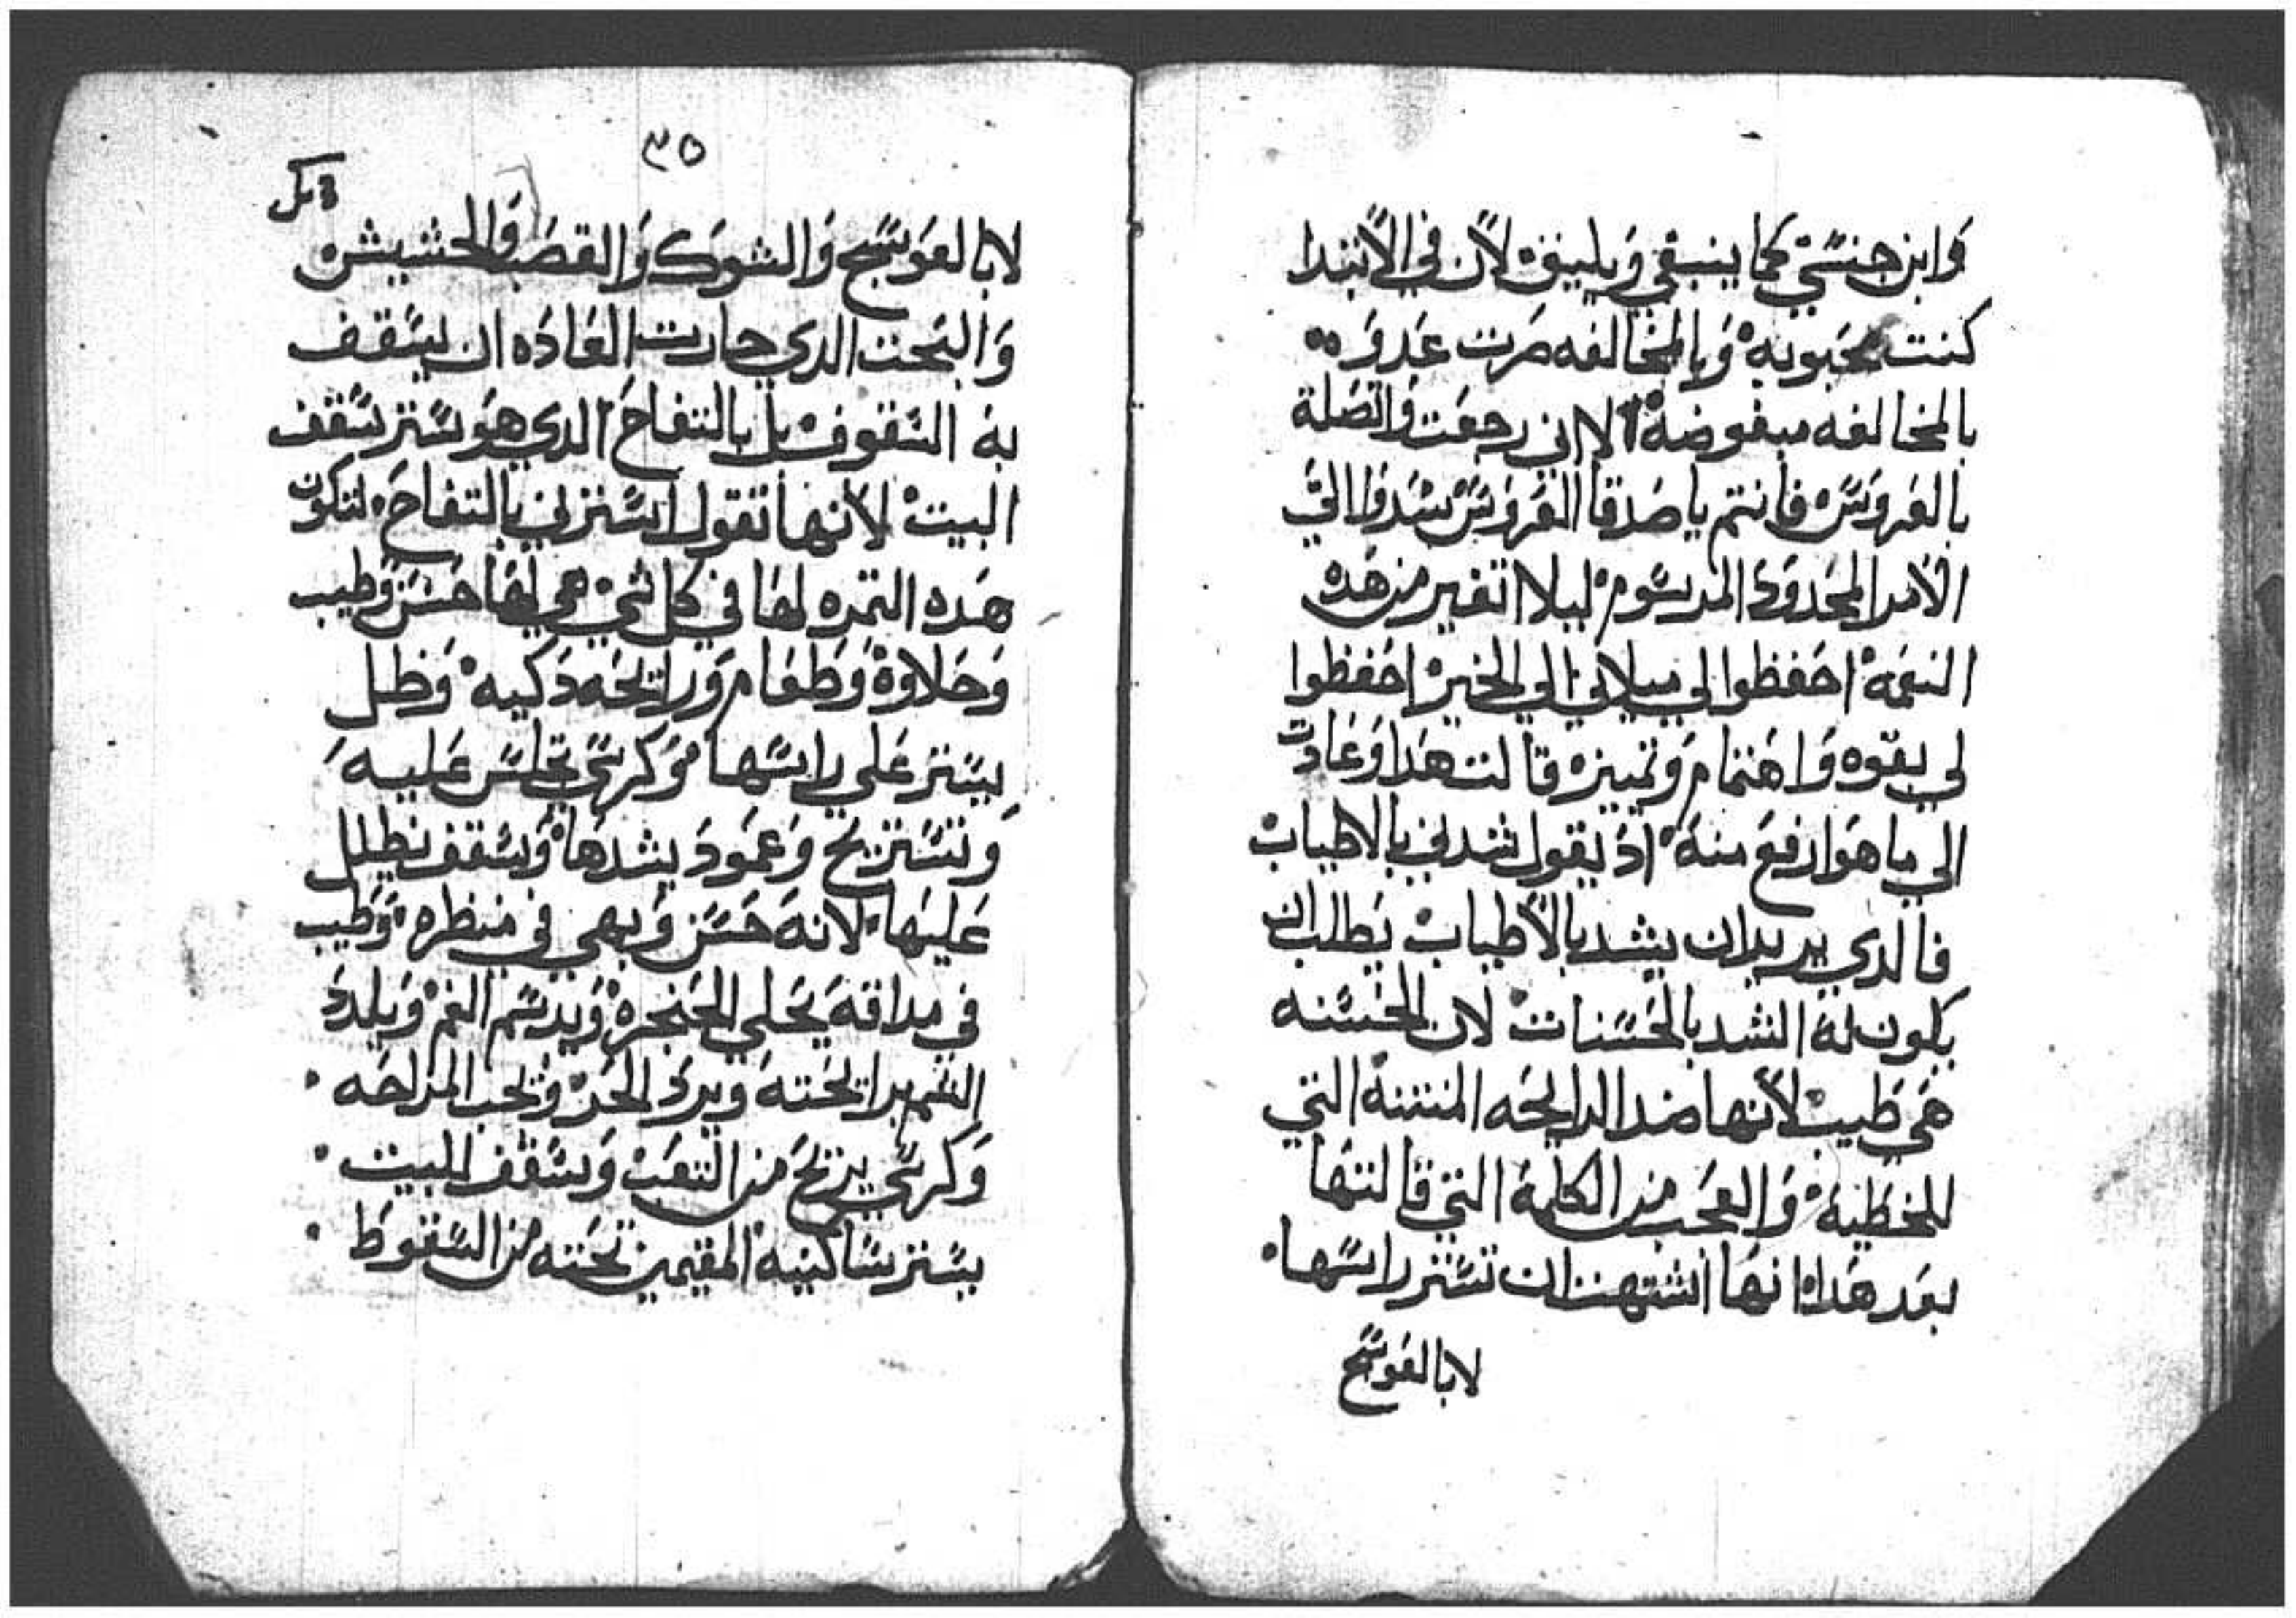 وابن جنسي كما ينبغي ويليق لان في الابتدا
كنت محبوبه وبالمخالفه صرت عدوه
بالمخالفه مبغوضة الا اني رجعت واتصلة
بالعروس فانتم يا صدقا العروس شدوا الي
الامر المحدود المرسوم ليلا اتغير من هده
النعمة احفظوا لي ميلاني الي الخير احفظوا
لي بقوه واهتمام وتمييزه قالت هدا وعادت
الي ما هو ارفع منه اد يقول شدني بالاطياب
فالدي يريد ان يشد بالاطياب يطلب ان
يكون له الشد بالحسنات لان الحسنه
هي طيب لانها ضد الرايحه المنتنة التي
للخطية والعجب من الكلمة التي قالتها
بعد هدا انها اشتهت ان تستر راسها
لا بالعوسج
٣٥
لا بالعوسج والشوك والقصب والحشيش
والبحت الدي جارت العاده ان يسقف
به السقوف بل بالتفاح الدي هو ستر سقف
البيت لانها تقول استرني بالتفاح لتكون
هده التمره لها في كل شي هي لها حسن وطيب
وحلاوة وطعام ورايحه دكيه وظل
يستر علي راسها وكرسي تجلس عليه
وتستريح وعمود يشدها وسقف يظلل
عليها لانه حسن وبهي في منظره وطيب
في مداقة يحلي الحنجره ويدسم الفم ويلدد
الشم برايحته ويرد الحر وتحب المراحه
وكرسي يريح من التعب وسقف البيت
يستر ساكنيه المقيمين تحته من السقوط